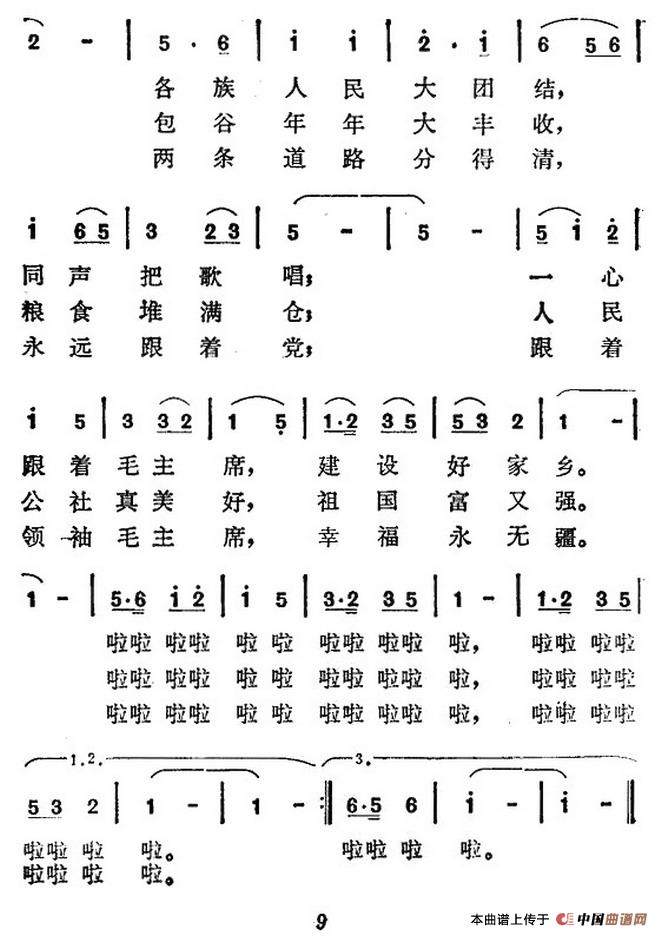 2 - | 5 · 6 | i i | 2 · i | 6 5 6 |
各 族 人 民 大 团 结,
包 谷 年 年 大 丰 收,
两 条 道 路 分 得 清,
i 6 5 | 3 2 3 | 5 - | 5 - | 5 i 2 |
同 声 把 歌 唱; 一 心
粮 食 堆 满 仓; 人 民
永 远 跟 着 党; 跟 着
i 5 | 3 3 2 | 1 5 | 1·2 3 5 | 5 3 2 | 1 - |
跟 着 毛 主 席, 建 设 好 家 乡。
公 社 真 美 好, 祖 国 富 又 强。
领 袖 毛 主 席, 幸 福 永 无 疆。
1 - | 5·6 i 2 | i 5 | 3·2 3 5 | 1 - | 1·2 3 5 |
啦啦 啦啦 啦 啦 啦啦 啦啦 啦, 啦啦 啦啦
啦啦 啦啦 啦 啦 啦啦 啦啦 啦, 啦啦 啦啦
啦啦 啦啦 啦 啦 啦啦 啦啦 啦, 啦啦 啦啦
1.2. 3.
5 3 2 | 1 - | 1 - :‖ 6·5 6 | i - | i - ‖
啦啦 啦 啦。 啦啦 啦 啦。
啦啦 啦 啦。
9
本曲谱上传于 中国曲谱网